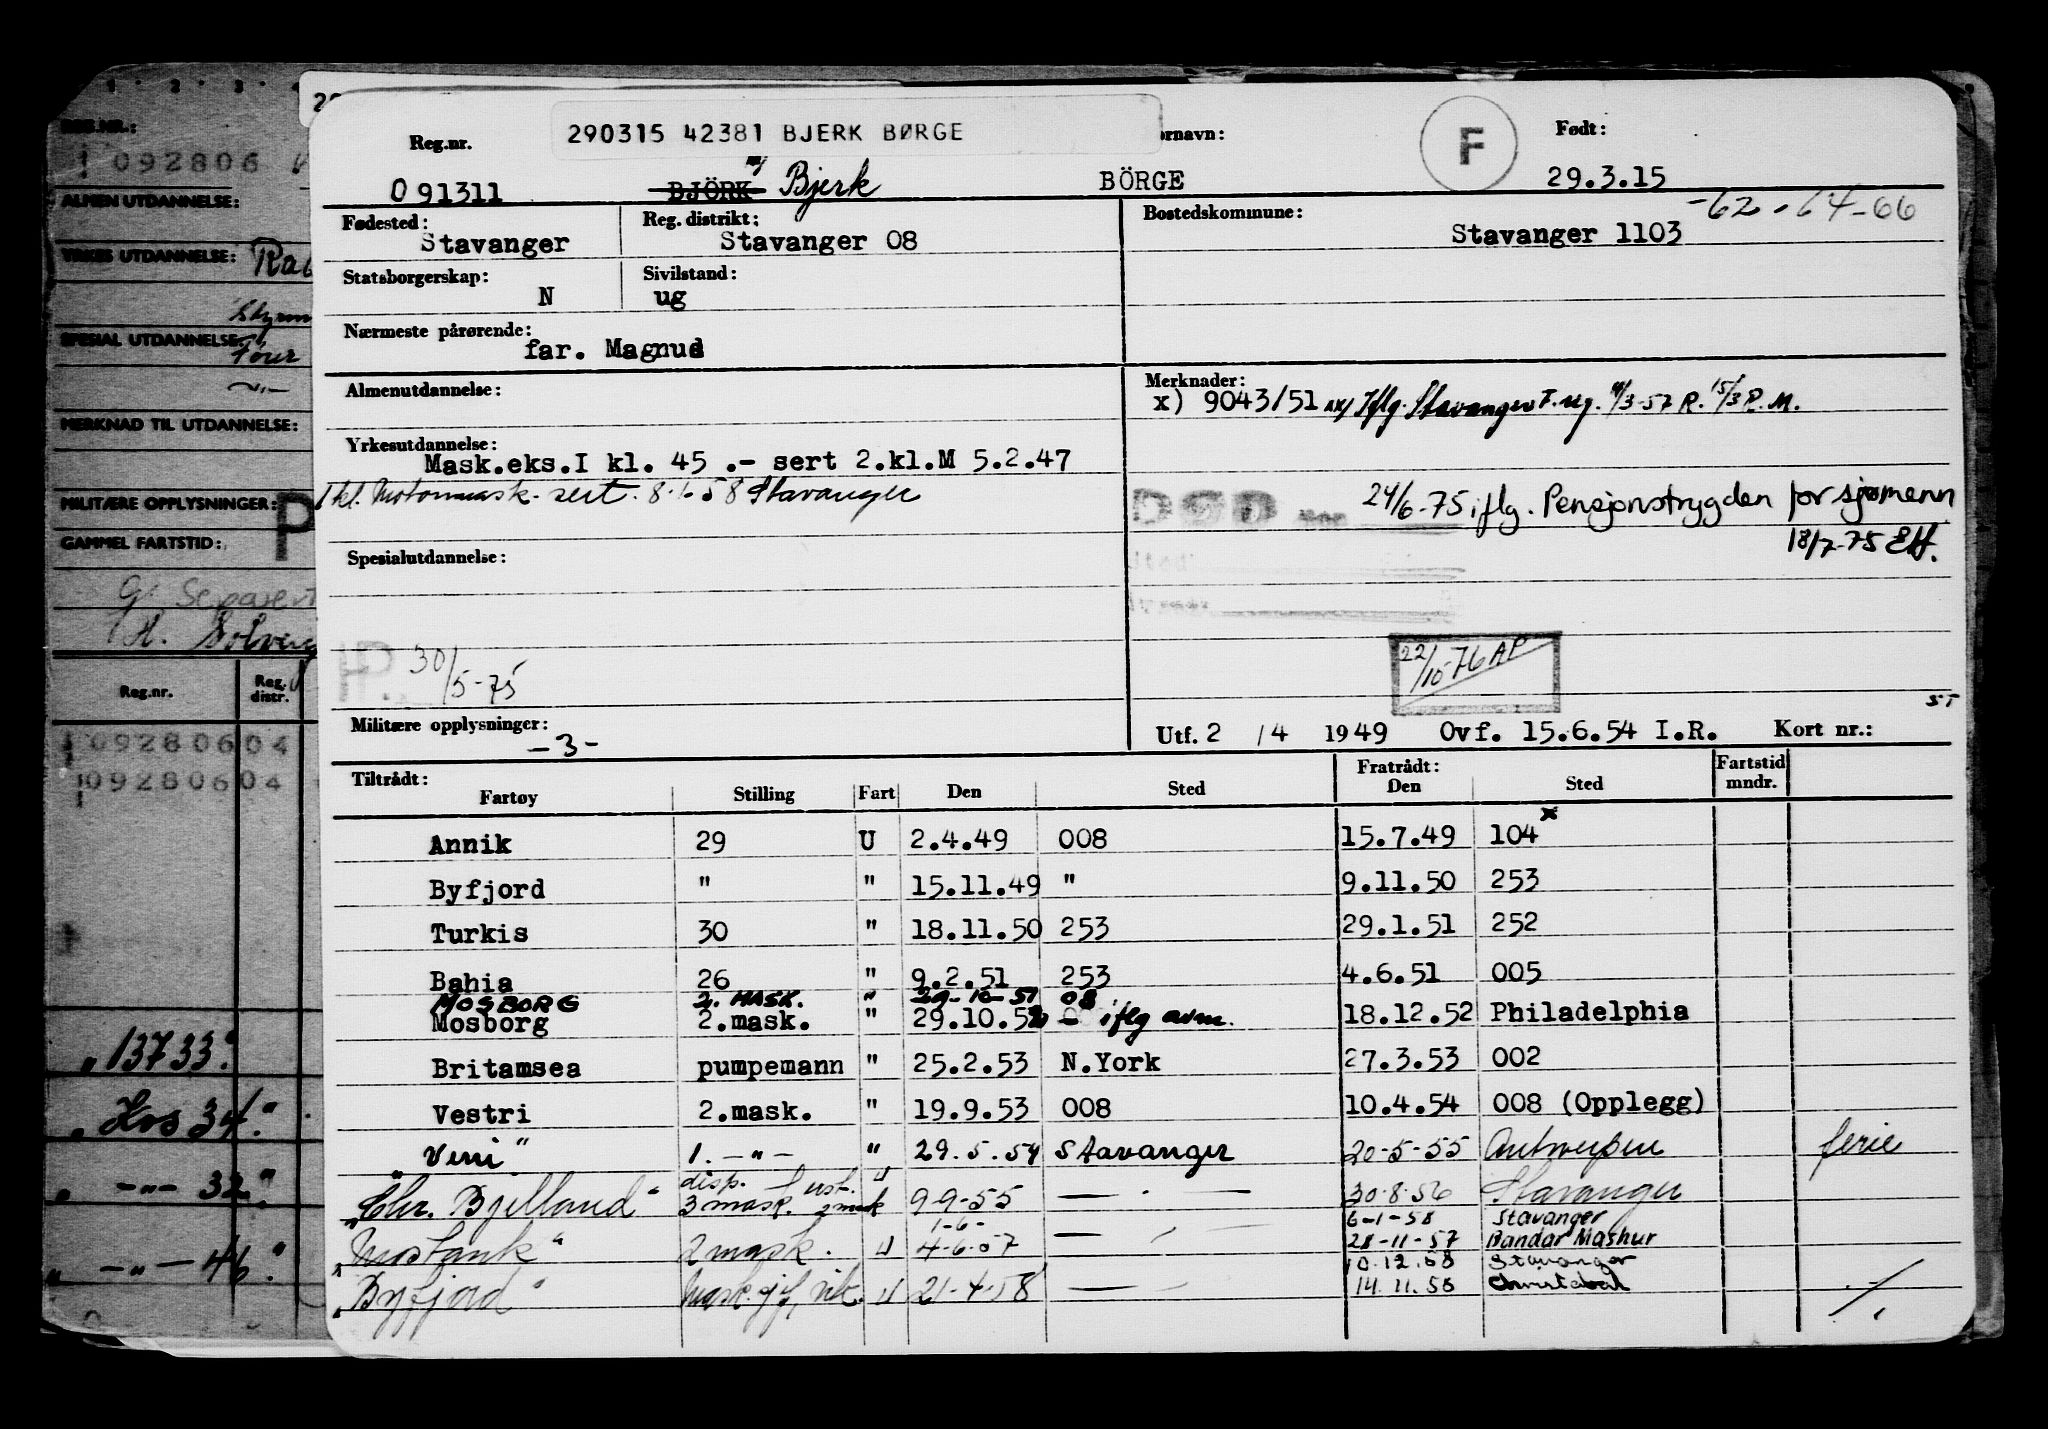 290315 42381 BJERK BØRGE
Reg.nr. ornavn: F Født:
091311 BJÖRK Bjerk BÖRGE 29.3.15
Fødested: Stavanger Reg. distrikt: Stavanger 08 Bostedskommune: Stavanger 1103 -62-64-66
Statsborgerskap: N Sivilstand: ug
Nærmeste pårørende: far. Magnus
Almenutdannelse: Merknader:
x) 9043/51 xx) Iflg. Stavanger F.reg. 3-57 R. 15/3 P.M.
Yrkesutdannelse:
Mask.eks.I kl. 45 .- sert 2.kl.M 5.2.47
1 kl. Motormask. sert. 8.1.58 Stavanger
DØD 24/6-75 iflg. Pensjonstrygden for sjømenn
18/7-75 EH.
Spesialutdannelse:
30/5-75
22/10-76 AP
Militære opplysninger: -3-
Utf. 2 /4 1949 Ovf. 15.6.54 I.R. Kort nr.: ST
Tiltrådt: Fratrådt: Fartstid
Fartøy Stilling Fart Den Sted Den Sted mndr.
Annik 29 U 2.4.49 008 15.7.49 104 x
Byfjord " " 15.11.49 " 9.11.50 253
Turkis 30 " 18.11.50 253 29.1.51 252
Bahia 26 " 9.2.51 253 4.6.51 005
MOSBORG 2. MASK. " 29-10-51 08
Mosborg 2.mask. " 29.10.52 - iflg avm. 18.12.52 Philadelphia
Britamsea pumpemann " 25.2.53 N.York 27.3.53 002
Vestri 2.mask. " 19.9.53 008 10.4.54 008 (Opplegg)
Veni" 1. -"- " 29.5.54 Stavanger 20-5-55 Antwerpen ferie
disp.
"Chr. Bjelland" 3 mask. 9-9-55 30-8-56 Stavanger
1-6- 6-1-58 Stavanger
Mostank" 2 mask. U 4-6-57 28-11-57 Bandar Mashur
10.12.58 Stavanger
"Byfjord" U 21-4-58 14.11.58
REG.NR.:
092806
ALMEN UTDANNELSE:
YRKES UTDANNELSE:
SPESIAL UTDANNELSE:
MERKNAD TIL UTDANNELSE:
MILITÆRE OPPLYSNINGER: P
GAMMEL FARTSTID:
Reg.nr. Reg. distr.
092806 04
092806 04
" 13733."
" Hos 34."
" -"- 32."
" -"- 46."